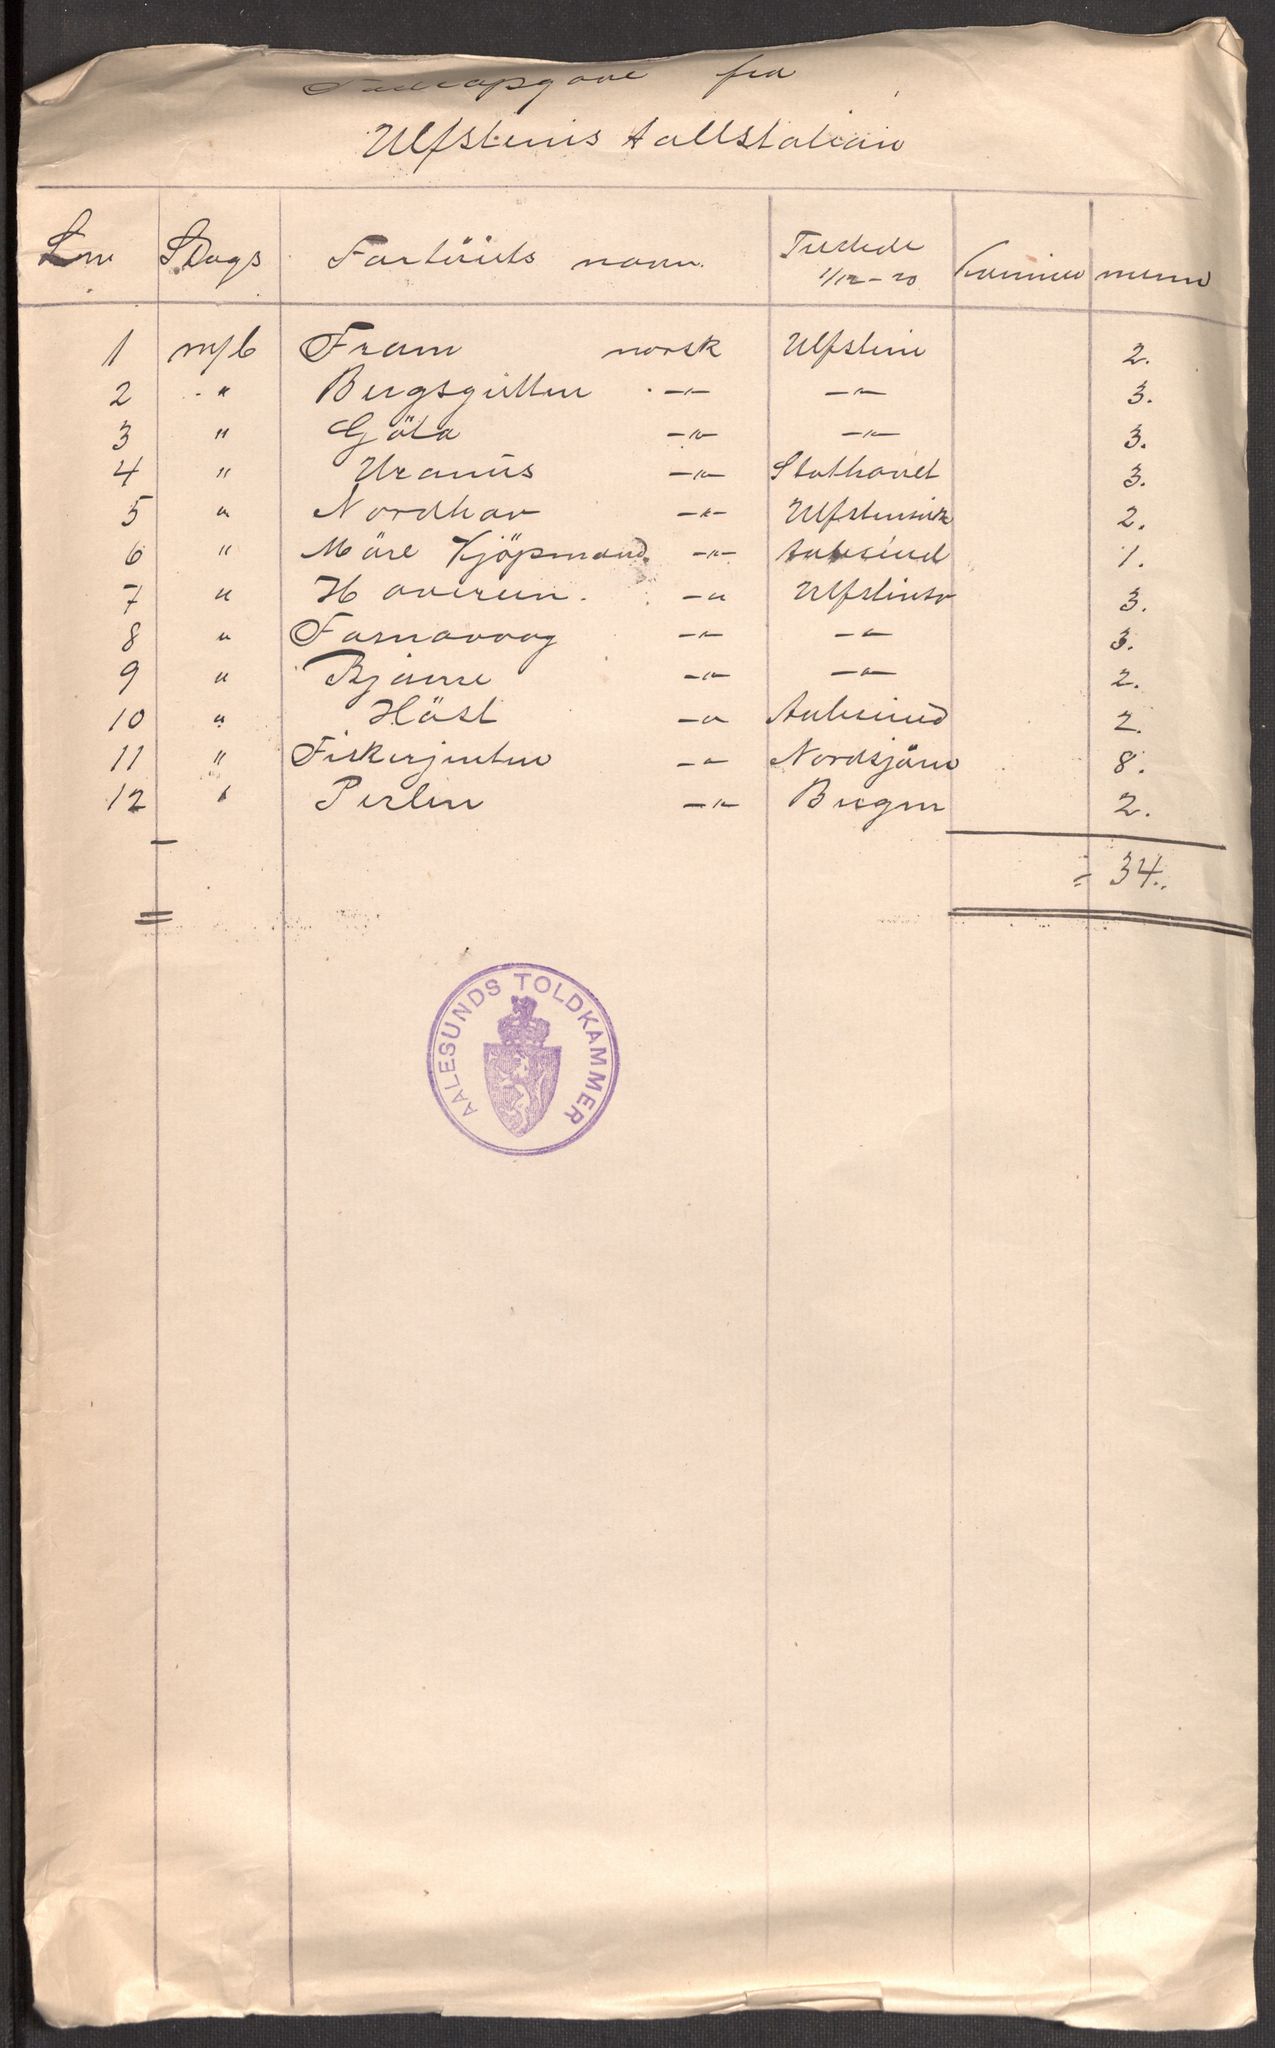 fra
Ulfstens tallstation
Lnr Slags Fartöiets navn. Tilstede 1/12-20 Kvinner menn
1 m/b Fram norsk Ulfstein 2.
2 " Bergsgutten -"- -"- 3.
3 " Göta -"- -"- 3.
4 " Uranus -"- Stathavet 3.
5 " Nordhav -"- Ulfstensvik 2.
6 " Möre Kjöpmand -"- Aalesund 1.
7 " Haverun. -"- 3.
8 " Fosnavaag -"- -"- 3.
9 " Bjarne -"- -"- 2.
10 " Häst -"- Aalesund 2.
11 " Fiskerjenten -"- Nordsjöen 8.
12 " Perlen -"- Bergen 2.
= 34..
AALESUNDS TOLDKAMMER